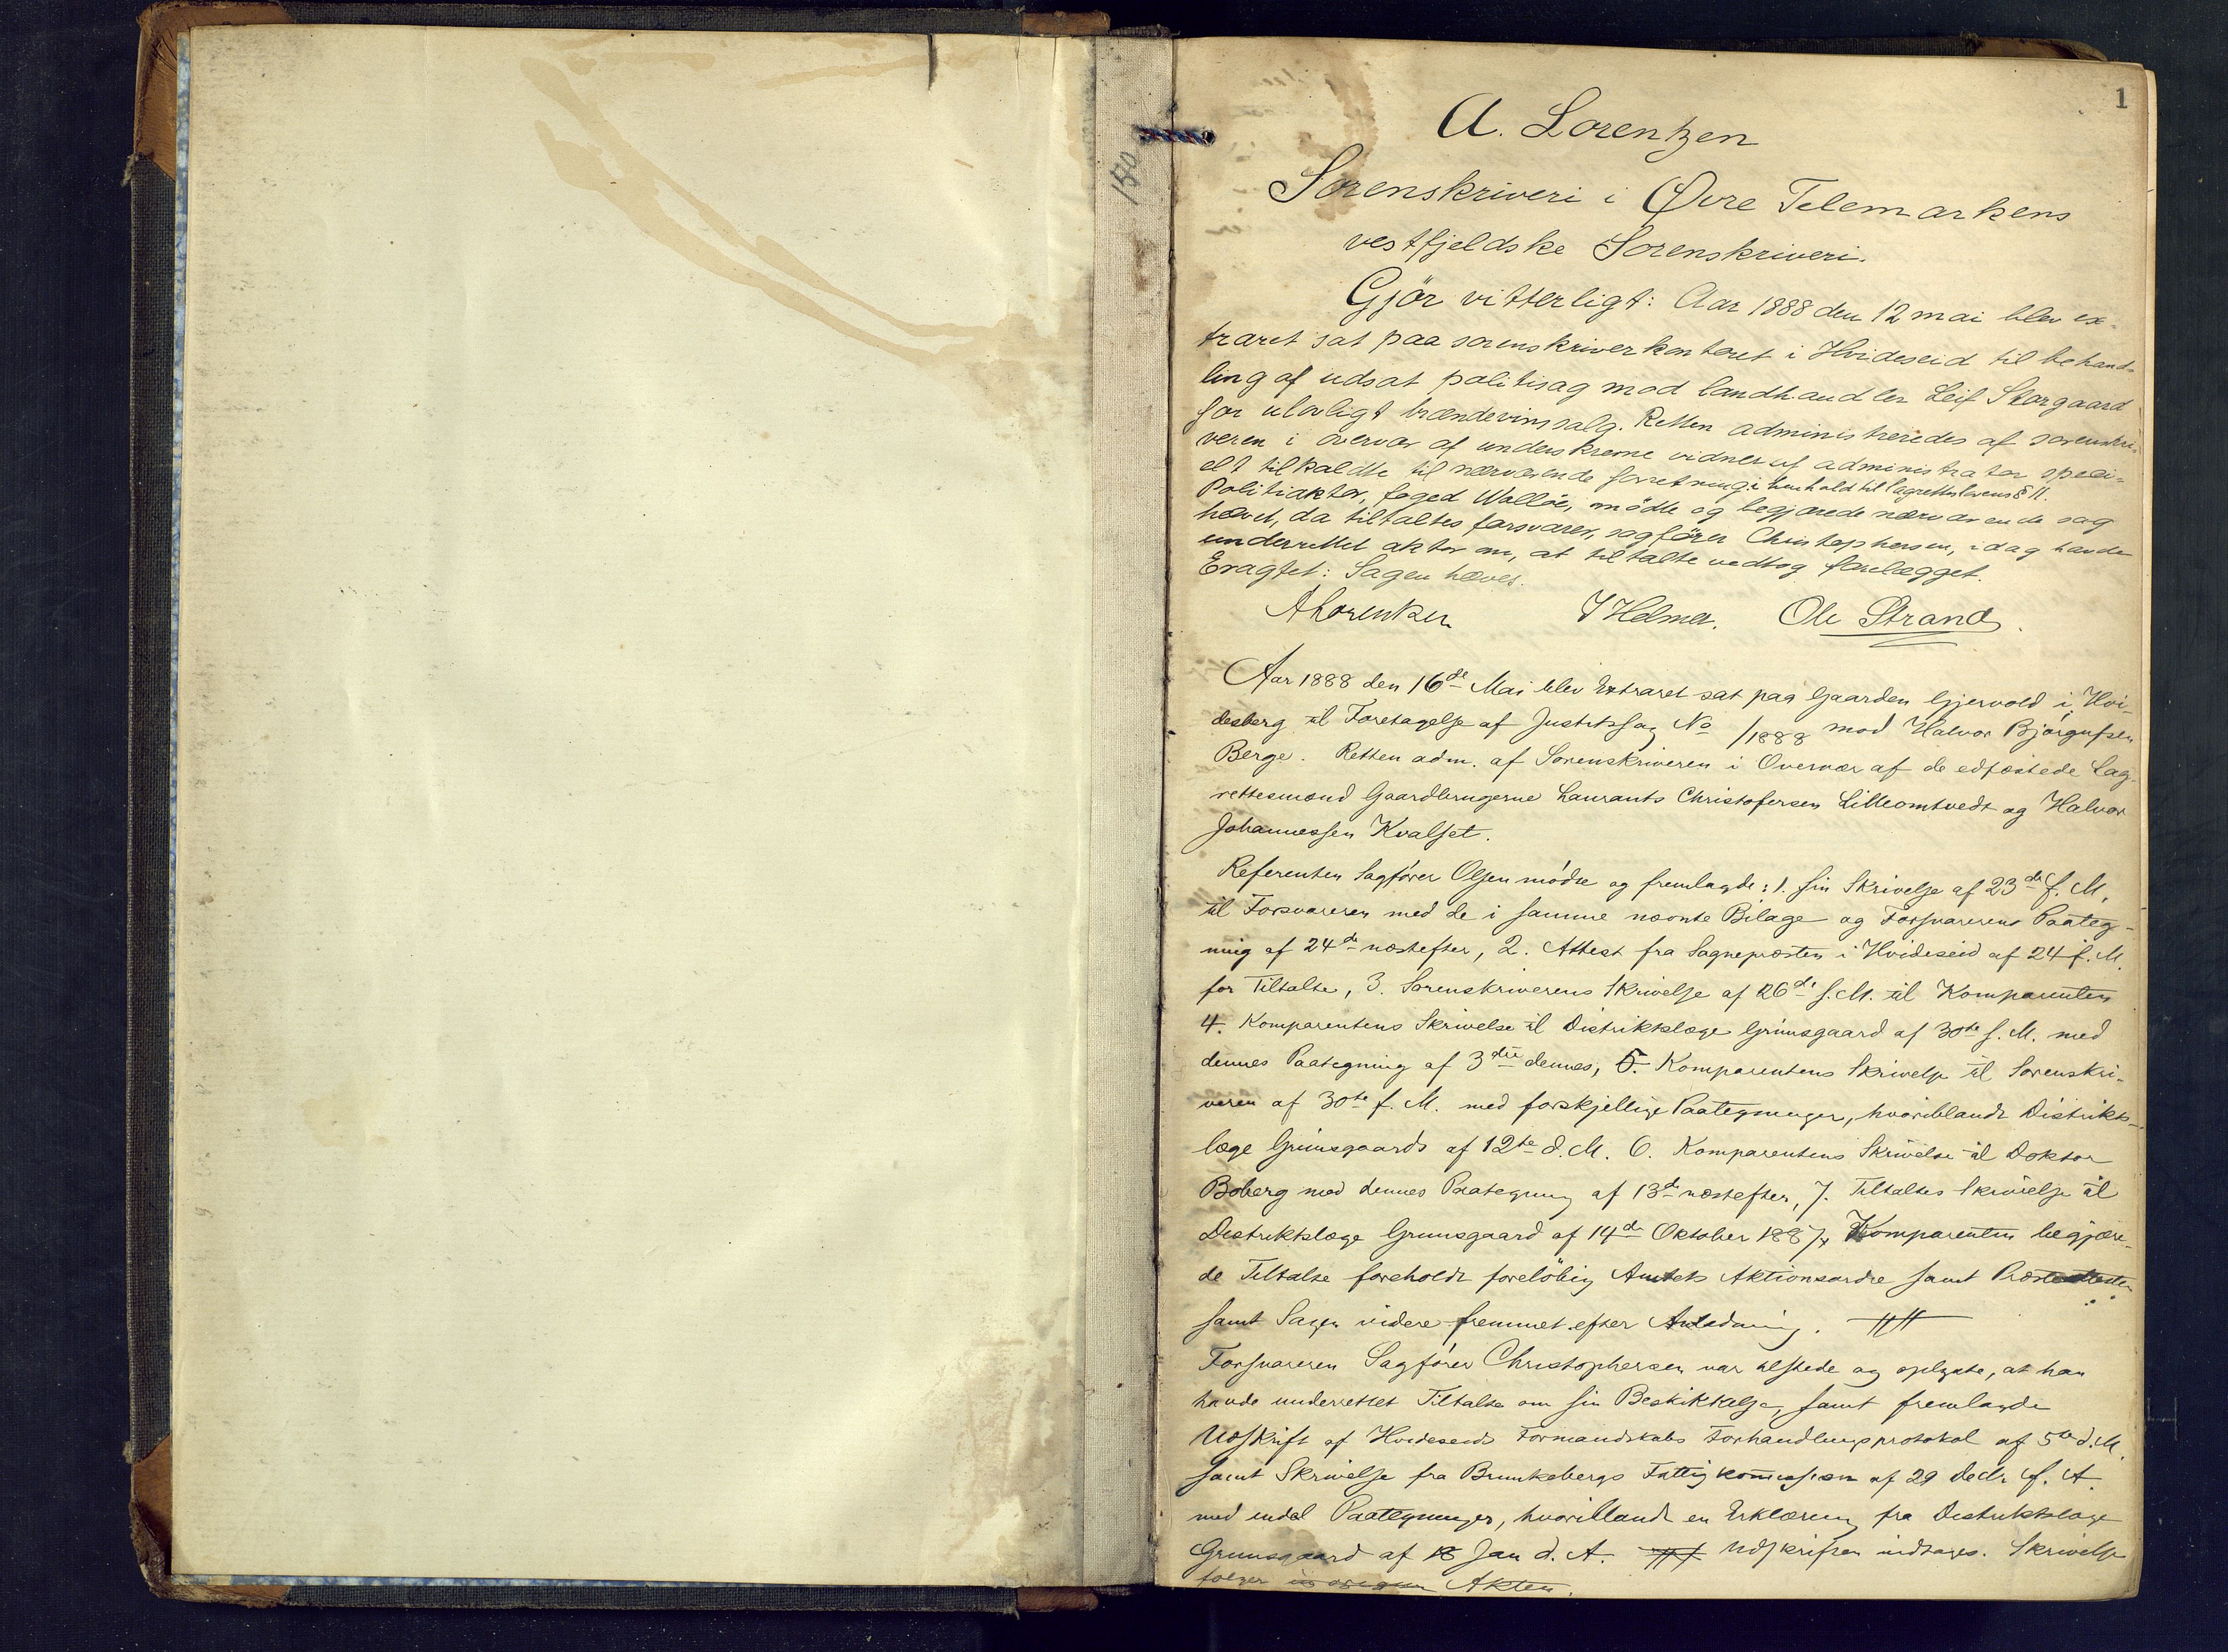 1
150
A. Lorentzen
Sorenskriveri i Øvre Telemarkens
vestfjeldske Sorenskriveri.
Gjör vitterligt: Aar 1888 den 12 mai blev ex-
traret sat paa sorenskriverkontoret i Hvideseid til behand-
ling af udsat politisag mod landhandler Leif Storgaard
for ulovligt brændevinssalg. Retten administreredes af sorenskri-
veren i overvær af underskrevne vidner af administrator speci-
elt tilkaldte til nærværende forretning i henhold til lagrettelovens § 11.
Politiaktor, foged Walløe, mödte og begjærede nærværende sag
hævet, da tiltaltes forsvarer, sagförer Christophersen, idag havde
underrettet aktor om, at tiltalte vedtog forelægget.
Eragtet: Sagen hæves.
ALorentzen Helmer. Ole Strand.
Aar 1888 den 16de Mai blev Extraret sat paa Gaarden Gjervold i Hvi-
desberg til Foretagelse af Justitssag No /1888 mod Halvor Bjørgufsen
Berge. Retten adm. af Sorenskriveren i Overvær af de edfæstede Lag-
rettesmænd Gaardbrugerne Laurants Christofersen Lilleomtvedt og Halvor
Johannessen Kvalset.
Referenten Sagfører Olsen mødte og fremlagde: 1. sin Skrivelse af 23de f. M.
til Forsvareren med de i samme nævnte Bilage og Forsvarerens Paateg-
ning af 24de næstefter, 2. Attest fra Sognepræsten i Hvideseid af 24 f. M.
for Tiltalte, 3. Sorenskriverens Skrivelse af 26de f. M. til Komparenten
4. Komparentens Skrivelse til Distriktslæge Grimsgaard af 30te f. M. med
dennes Paategning af 3die dennes, 5. Komparentens Skrivelse til Sorenskri-
veren af 30te f. M. med forskjellige Paategninger, hvoriblandt Distrikts-
læge Grimsgaards af 12te d. M. 6. Komparentens Skrivelse til Doktor
Boberg med dennes Paategning af 13de næstefter, 7. Tiltaltes Skrivelse til
Distriktslæge Grimsgaard af 14de Oktober 1887. Komparenten begjære-
de Tiltalte foreholdt foreløbig Amtets Aktionsordre samt Præsteattesten
samt Sagen videre fremmet efter Anledning.
Forsvareren Sagfører Christophersen var tilstede og oplyste, at han
havde underrettet Tiltalte om sin Beskikkelse, samt fremlagde
Udskrift af Hvideseids Formandskabs Forhandlingsprotokol af 5te d. M.
samt Skrivelse fra Brunkebergs Fattigkommission af 29 Decbr f. A.
med endel Paategninger, hvoriblandt en Erklæring fra Distriktslæge
Grimsgaard af 18 Jan d. A. Udskriften indtages. Skrivelse
følger Akten.